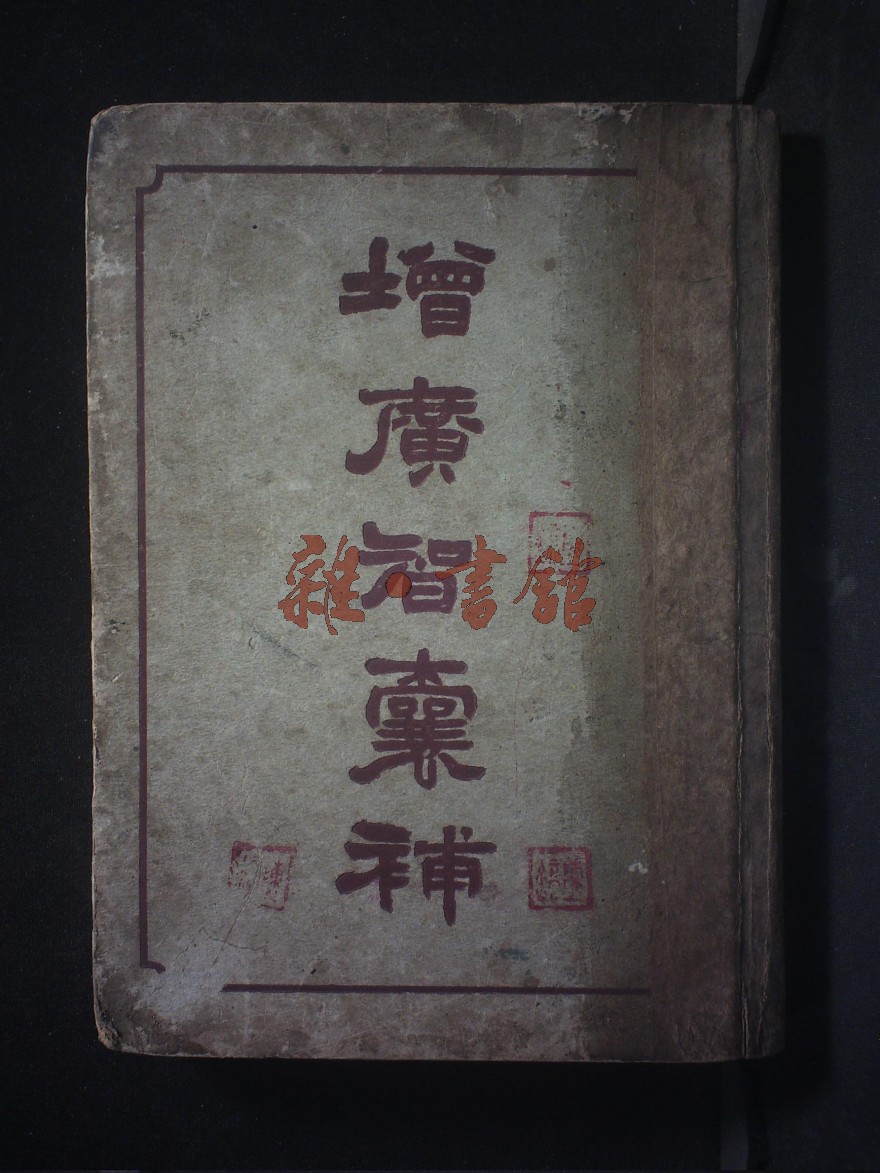 增廣智囊補
雜·書館